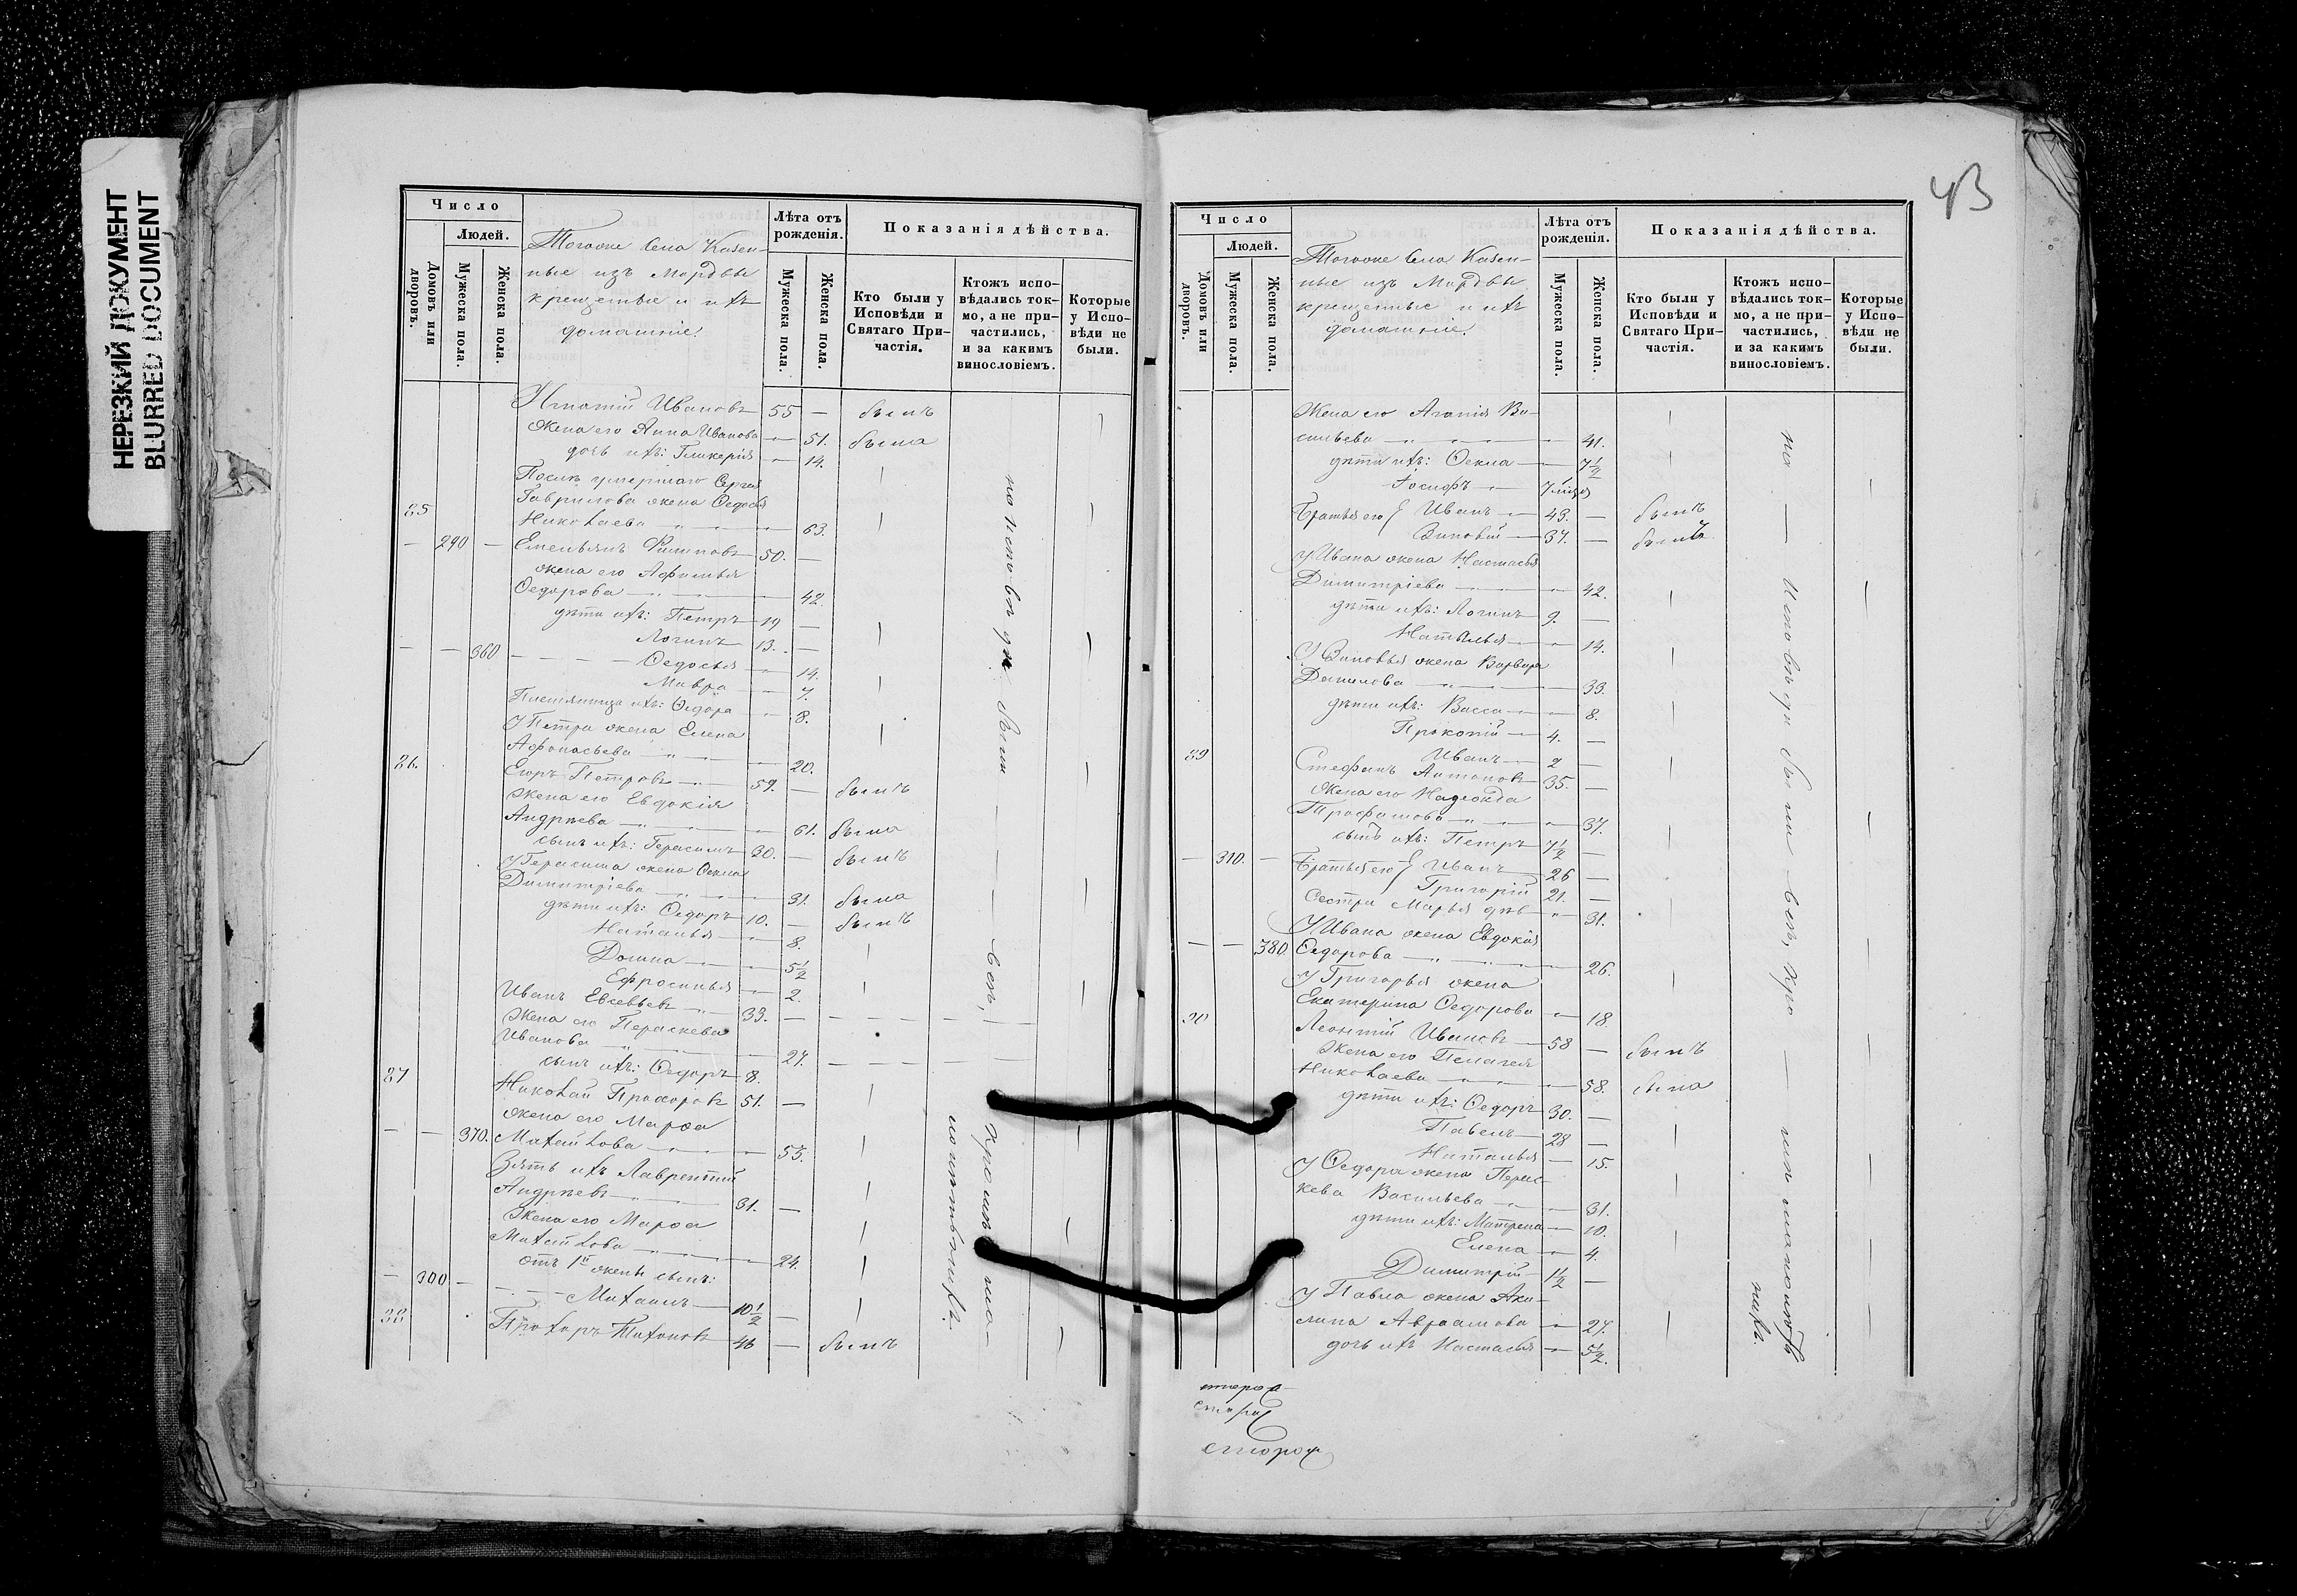 НЕРЕЗКИЙ ДОКУМЕНТ
BLURRED DOCUMENT
Число
Людей.
Домовъ или дворовъ.
Мужеска пола.
Женска пола.
Тогоже села Казен-
ные изъ Мордвы
крещеные и ихъ
домашніе.
Лѣта отъ рожденія.
Мужеска пола.
Женска пола.
Показанія дѣйства.
Кто были у Исповѣди и Святаго При-частія.
Ктожъ испо-вѣдались ток-мо, а не при-частились, и за какимъ винословіемъ.
Которые у Испо-вѣди не были.
Игнатій Ивановъ 55 — былъ
Жена его Анна Иванова — 51. была
дочь ихъ: Гликерія — 14.
Послѣ умершаго Сергея
Гаврилова жена Ѳедосья
85 Николаева — 63.
— 290 — Емельянъ Филиповъ 50. —
жена его Афимья
Ѳедорова — 42.
дѣти ихъ: Петръ 19 —
Логинъ 13. —
— — 360 — Ѳедосья — 14.
Мавра — 7.
Племянница ихъ: Ѳедора — 8.
У Петра жена Елена
Афонасьева — 20.
86. Егоръ Петровъ 59. — былъ
Жена его Евдокія
Андрѣева — 61. была
сынъ ихъ: Герасимъ 30. — былъ
У Герасима жена Ѳекла
Димитріева — 31. была
дѣти ихъ: Ѳедоръ 10. — былъ
Наталья — 8.
Домна — 5 1/2
Ефросинья — 2.
Иванъ Евсевьевъ 33. —
Жена его Пераскева
Иванова — 27.
сынъ ихъ: Ѳедоръ 8.
87 Николай Прохоровъ 51. —
жена его Марѳа
— — 370. Михайлова — 53.
Зять ихъ Лаврентій
Андрѣевъ 31. —
Жена его Марѳа
Михайлова — 24.
отъ 1й жены сынъ:
— 300 — Михаилъ 10 1/2 —
88 Прохоръ Тихоновъ 46 — былъ
по исповѣди были всѣ,
кромѣ мла-
43
Число
Людей.
Домовъ или дворовъ.
Мужеска пола.
Женска пола.
Тогоже села Казен-
ные изъ Мордвы
крещеные и ихъ
домашніе.
Лѣта отъ рожденія.
Мужеска пола.
Женска пола.
Показанія дѣйства.
Кто были у Исповѣди и Святаго При-частія.
Ктожъ испо-вѣдались ток-мо, а не при-частились, и за какимъ винословіемъ.
Которые у Испо-вѣди не были.
Жена его Агапія Ва-
сильева — 41.
дѣти ихъ: Ѳекла — 7 1/2
Іосифъ
Братья его { Иванъ 43. — былъ
Зиновій 37. — былъ
У Ивана жена Настасья
Димитріева — 42.
дѣти ихъ: Логинъ 9. —
Наталья — 14.
У Зиновья жена Варвара
Данилова — 33.
дѣти ихъ: Васса — 8.
Прокопій 4. —
Иванъ 2 —
89 Стефанъ Антоновъ 35. —
Жена его Надежда
Трофимова — 37.
сынъ ихъ: Петръ 7 1/2 —
— 310. — Братья его { Иванъ 26 —
Григорій 21. —
Сестра Марья дѣв. — 31.
У Ивана жена Евдокія
— — 380. Ѳедорова — 26.
У Григорья жена
Екатерина Ѳедорова — 18.
90 Леонтій Ивановъ 58 — былъ
Жена его Пелагея
Николаева — 58. была
дѣти ихъ: Ѳедоръ 30. —
Павелъ 28 —
Наталья — 15.
У Ѳедора жена Перас-
кева Васильева — 31.
дѣти ихъ: Матрена — 10.
Елена — 4.
Димитрій 1 1/2 —
У Павла жена Аку-
лина Авраамова — 27.
дочь ихъ Настасья — 5 1/2.
по — исповѣди были всѣ, кро — мѣ